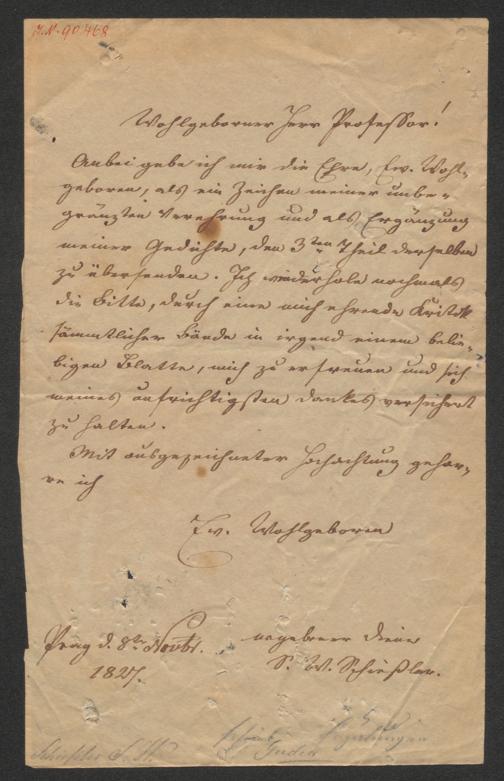 I.N. 90468
Wohlgeborner Herr Professor!
Anbei gebe ich mir die Ehre, Ew. Wohl-
geboren, als ein Zeichen meiner unbe-
gränzten Verehrung und als Ergänzung
meiner Gedichte, den 3ten Theil derselben
zu übersenden. Ich wiederhole nochmals
die Bitte, durch eine mich ehrende Kritik
sämmtlicher Bände in irgend einem belie-
bigen Blatte, mich zu erfreuen und sich
meines aufrichtigsten Dankes versichert
zu halten.
Mit ausgezeichneter Hochachtung gehar-
re ich
Ew. Wohlgeboren
Prag d. 8ten Novbr. ergebner Diener
1827. S. W. Schießler.
Schießler S. W.